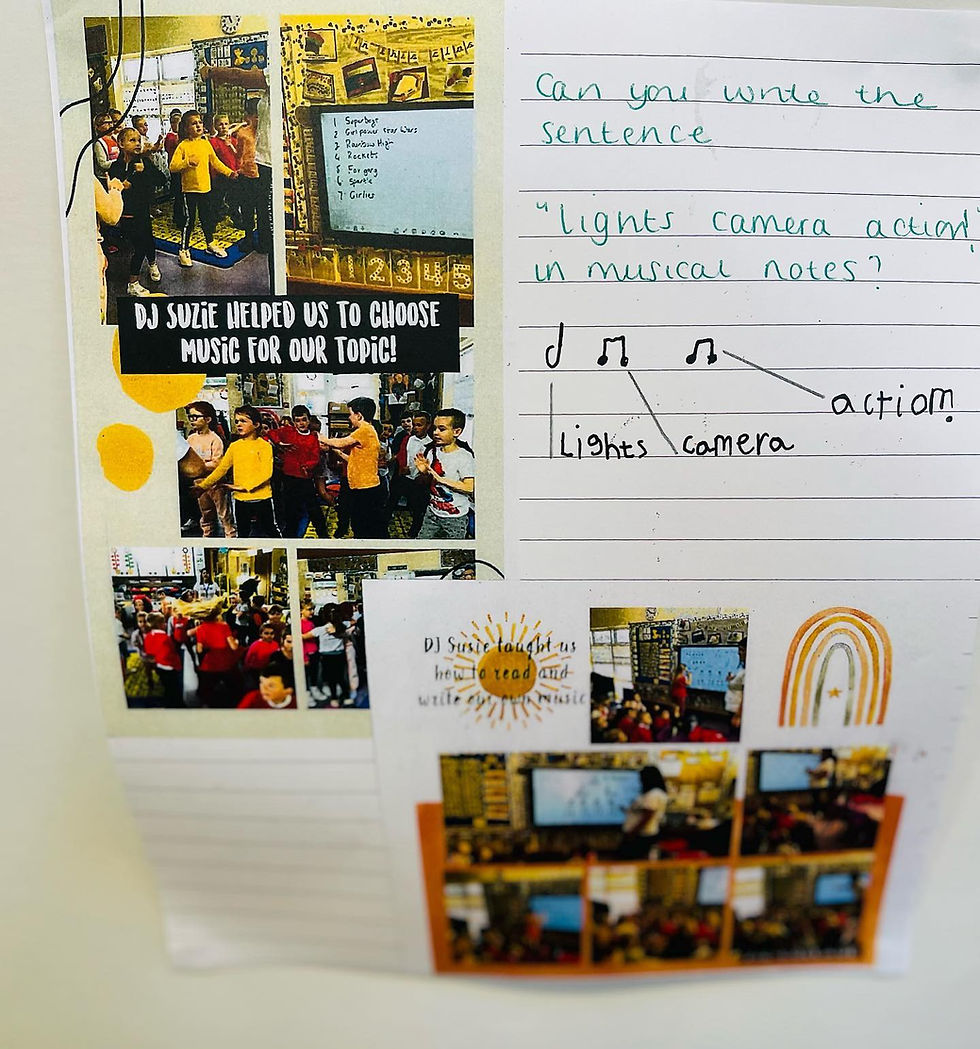 1 Superboys
2 Girl power Star Wars
3 Rainbow High
4 Rockets
7 Girlies
1 2 3 4 5
DJ SUZIE HELPED US TO CHOOSE
MUSIC FOR OUR TOPIC!
Can you write the
sentence
"lights camera action!"
in musical notes?
Lights camera action!
DJ Susie taught us
how to read and
write our own music